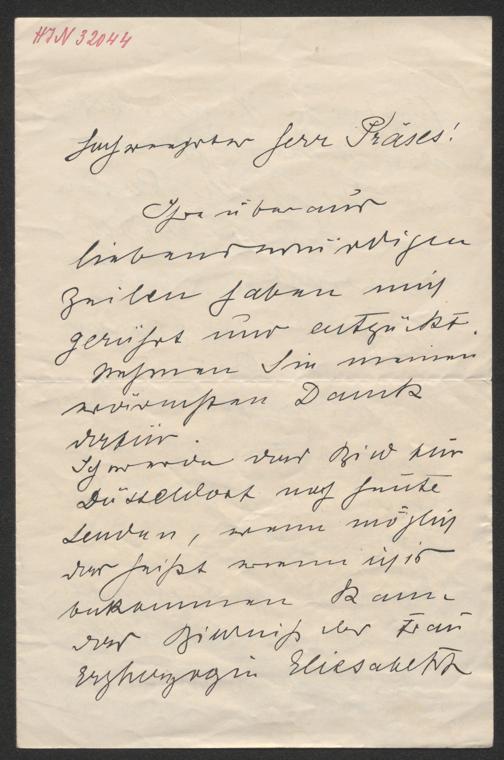 HIN 32044
Hochverehrter Herr Präses!
Ihre überaus
liebenswürdigen
Zeilen haben mich
gerührt und entzückt.
Nehmen Sie meinen
wärmsten Dank
dafür.
Ich werde das Bild für
Düsseldorf noch heute
senden, wenn möglich
das heißt wenn ich's
bekommen kann
das Bildniß der Frau
Erzherzogin Eliesabetth